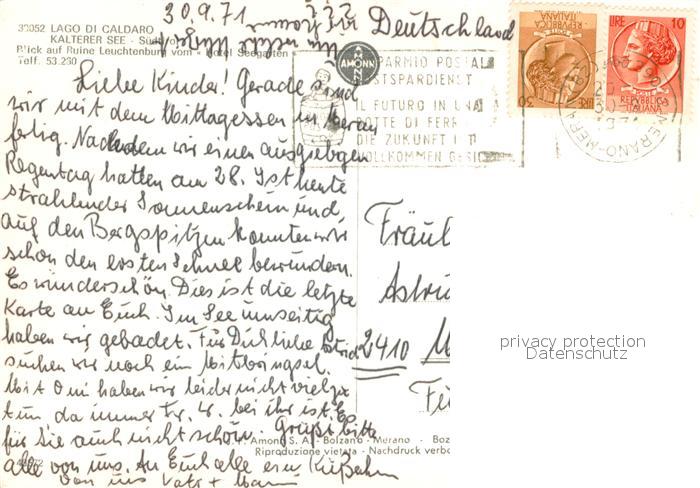 30.9.71
Deutschland
30052 LAGO DI CALDARO
KALTERER SEE - Südtirol
Blick auf Ruine Leuchtenburg vom Hotel Seegarten
Telf. 53.230
AMONN
RISPARMIO POSTALE
POSTSPARDIENST
IL FUTURO IN UNA
BOTTE DI FERRO
DIE ZUKUNFT IST
VOLLKOMMEN GESI
REPUBBLICA ITALIANA
LIRE 30
LIRE 10
REPUBBLICA ITALIANA
MERANO-MERAN
Liebe Kinder! Gerade sind
wir mit dem Mittagessen in Meran
fertig. Nachdem wir einen ausgiebigen
Regentag hatten am 28. Ist heute
strahlender Sonnenschein und,
auf den Bergspitzen konnten wir
schon den ersten Schnee bewundern.
Es wunderschön. Dies ist die letzte
Karte an Euch. Im See
haben wir gebadet. Für Dich liebe Astrid
suchen wir noch ein Mitbringsel.
Mit Omi haben wir leider nicht viel
tun da immer Fr. W. bei ihr ist. Es
für Sie auch nicht schön. Grüßt bitte
alle von uns. An Euch alle ein Küßchen
von uns Vati + Mami
Fräul
Astri
2410
F. Amonn S. A. Bolzano - Merano - Boz
Riproduzione vietata - Nachdruck verbo
privacy protection
Datenschutz